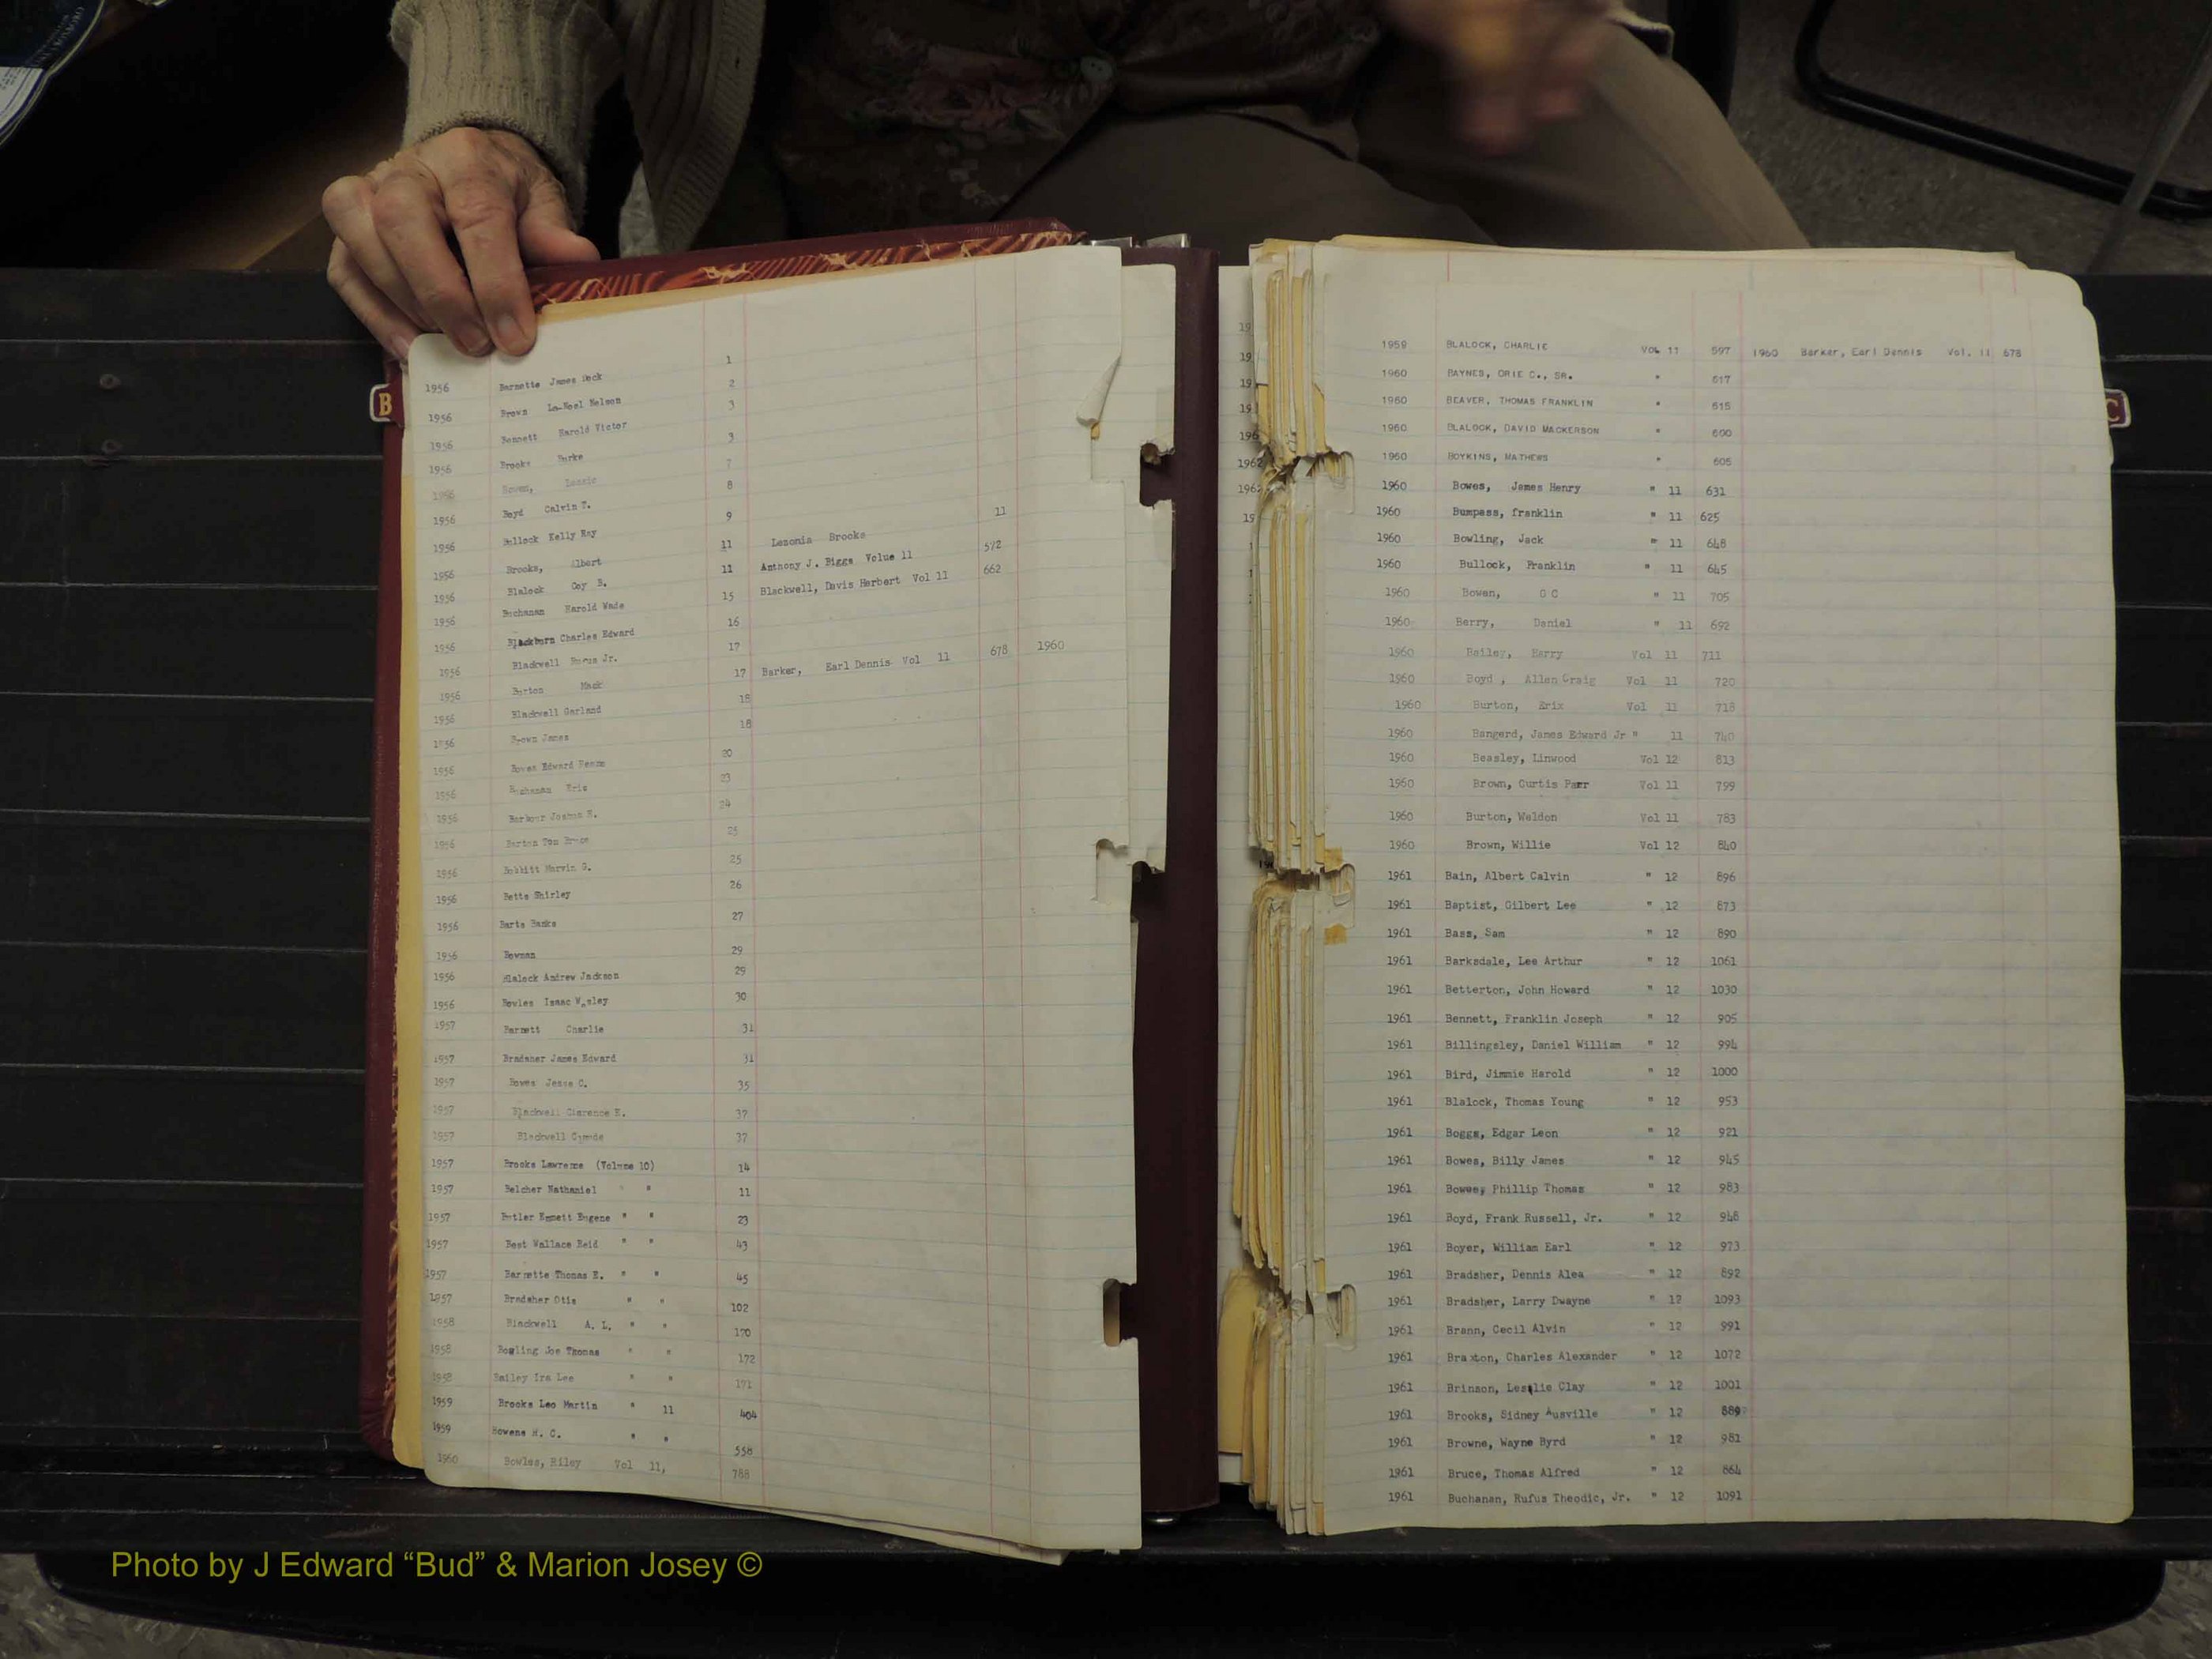 B
1
1956 Barnette James
1956 Brown La-Noel Nelson 2
1956 Bennett Harold Victor 3
1956 Brooks Burke 3
1956 7
1956 Boyd Calvin T. 8
1956 Bullock Kelly Ray 9
1956 Brooks, Albert 11 Lezonia Brooks 11
1956 Blalock Coy B. 11 Anthony J. Biggs Volue 11 572
1956 Buchanan Harold Wade 15 Blackwell, Davis Herbert Vol 11 662
1956 Blackburn Charles Edward 16
1956 Blackwell Rufus Jr. 17
1956 Burton Mack 17 Barker, Earl Dennis Vol 11 678 1960
1956 Blackwell Garland 18
1956 Brown James 18
1956 Bowes Edward 20
1956 Buchanan Eric 23
1956 Barbour Joshua E. 24
1956 Barton Tom 25
1956 Bobbitt Marvin G. 25
1956 Betts Shirley 26
1956 Barts Banks 27
1956 Bowman 29
1956 Blalock Andrew Jackson 29
1956 Bowles Isaac Wesley 30
1957 Barnett Charlie 31
1957 Bradsher James Edward 31
1957 Bowes Jesse C. 35
1957 Blackwell Clarence E. 37
1957 Blackwell 37
1957 Brooks Lawrence (Volume 10) 14
1957 Belcher Nathaniel " " 11
1957 Butler Emmett Eugene " " 23
1957 Best Wallace Reid " " 43
1957 Barnette Thomas E. " " 45
1957 Bradsher Otis " " 102
1958 Blackwell A. L. " " 170
1958 Bowling Joe Thomas " " 172
1958 Bailey Ira Lee " " 191
1959 Brooks Leo Martin " 11 404
1959 Bowens H. C. " " 558
1960 Bowles, Riley Vol 11, 788
1958 BLALOCK, CHARLIE Vol 11 597 1960 Barker, Earl Dennis Vol. 11 678
1960 BAYNES, ORIE C., SR. " 617
1960 BEAVER, THOMAS FRANKLIN " 615
1960 BLALOCK, DAVID MACKERSON " 600
1960 BOYKINS, MATHEWS " 605
1960 Bowes, James Henry " 11 631
1960 Bumpass, franklin " 11 625
1960 Bowling, Jack " 11 648
1960 Bullock, Franklin " 11 645
1960 Bowen, G C " 11 705
1960 Berry, Daniel " 11 692
1960 Bailey, Harry Vol 11 711
1960 Boyd, Allen Craig Vol 11 720
1960 Burton, Erix Vol 11 718
1960 Bangerd, James Edward Jr " 11 740
1960 Beasley, Linwood Vol 12 813
1960 Brown, Curtis Parr Vol 11 799
1960 Burton, Weldon Vol 11 783
1960 Brown, Willie Vol 12 840
1961 Bain, Albert Calvin " 12 896
1961 Baptist, Gilbert Lee " 12 873
1961 Bass, Sam " 12 890
1961 Barksdale, Lee Arthur " 12 1061
1961 Betterton, John Howard " 12 1030
1961 Bennett, Franklin Joseph " 12 905
1961 Billingsley, Daniel William " 12 994
1961 Bird, Jimmie Harold " 12 1000
1961 Blalock, Thomas Young " 12 953
1961 Boggs, Edgar Leon " 12 921
1961 Bowes, Billy James " 12 945
1961 Bowes, Phillip Thomas " 12 983
1961 Boyd, Frank Russell, Jr. " 12 946
1961 Boyer, William Earl " 12 973
1961 Bradsher, Dennis Alea " 12 892
1961 Bradsher, Larry Dwayne " 12 1093
1961 Brann, Cecil Alvin " 12 991
1961 Braxton, Charles Alexander " 12 1072
1961 Brinson, Leslie Clay " 12 1001
1961 Brooks, Sidney Ausville " 12 889
1961 Browne, Wayne Byrd " 12 981
1961 Bruce, Thomas Alfred " 12 864
1961 Buchanan, Rufus Theodic, Jr. " 12 1091
C
Photo by J Edward “Bud” & Marion Josey ©